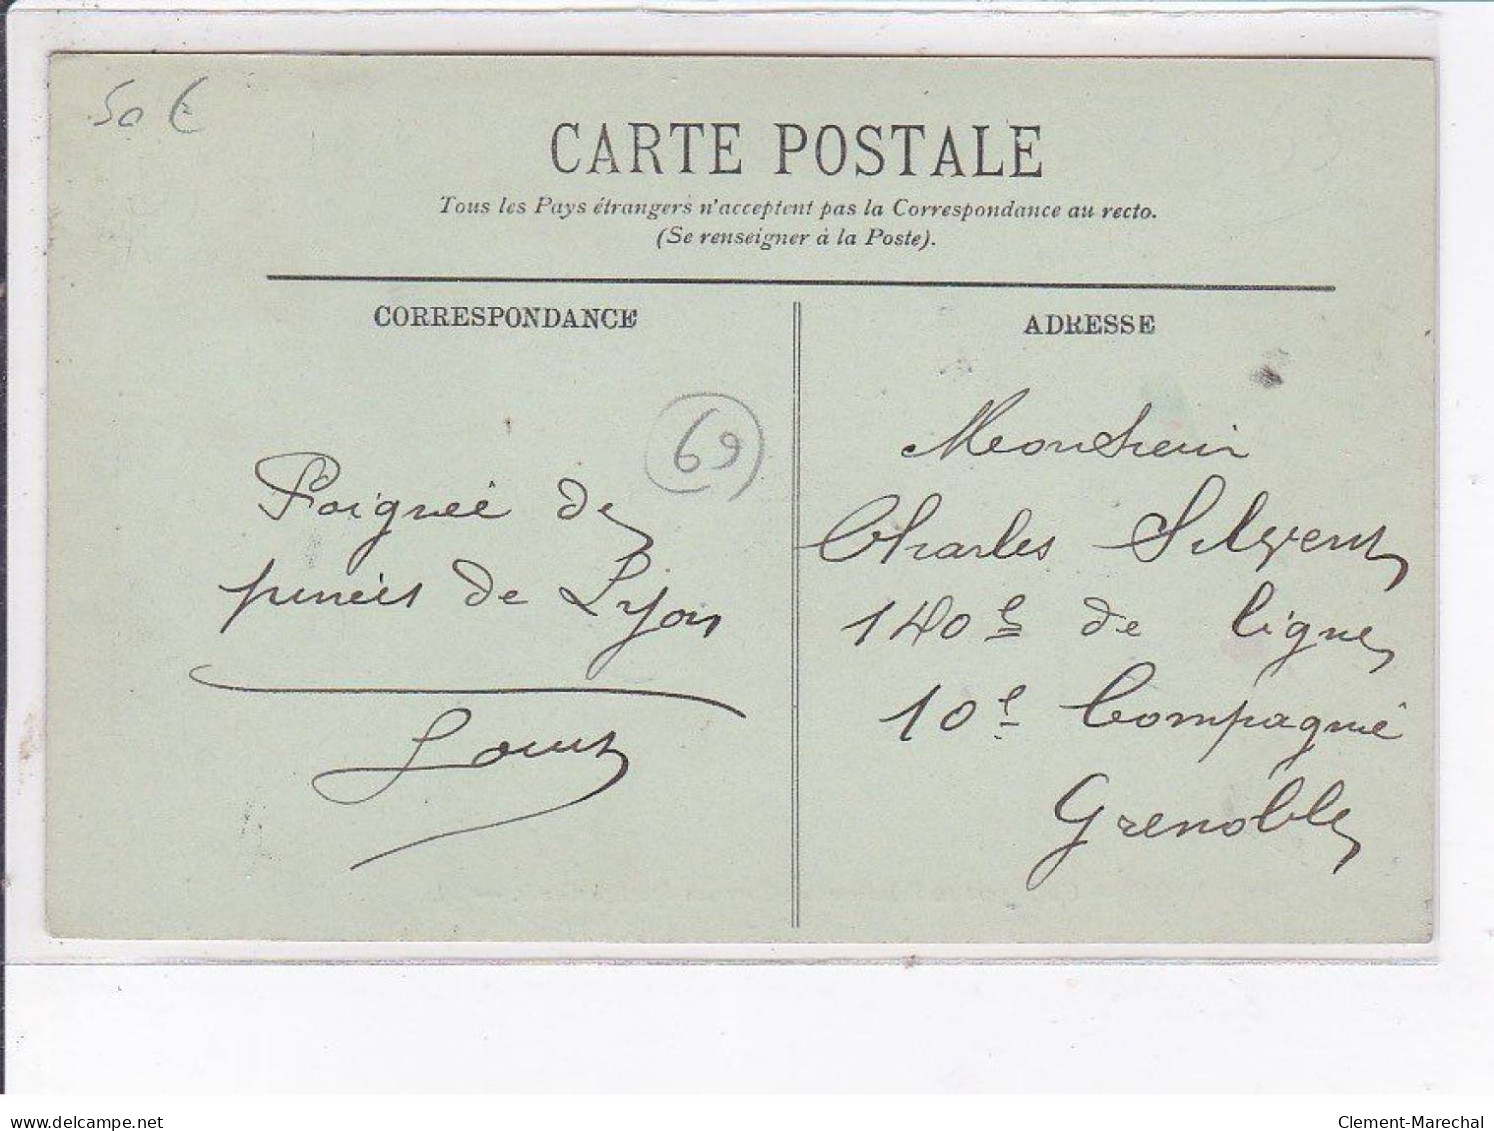 50 €
CARTE POSTALE
Tous les Pays étrangers n'acceptent pas la Correspondance au recto.
(Se renseigner à la Poste).
CORRESPONDANCE
69
Poignée de
punées de Lyon
Louis
ADRESSE
Monsieur
Charles Silvent
140e de ligne
10e Compagnie
Grenoble
delcampe.net
Clement-Marechal